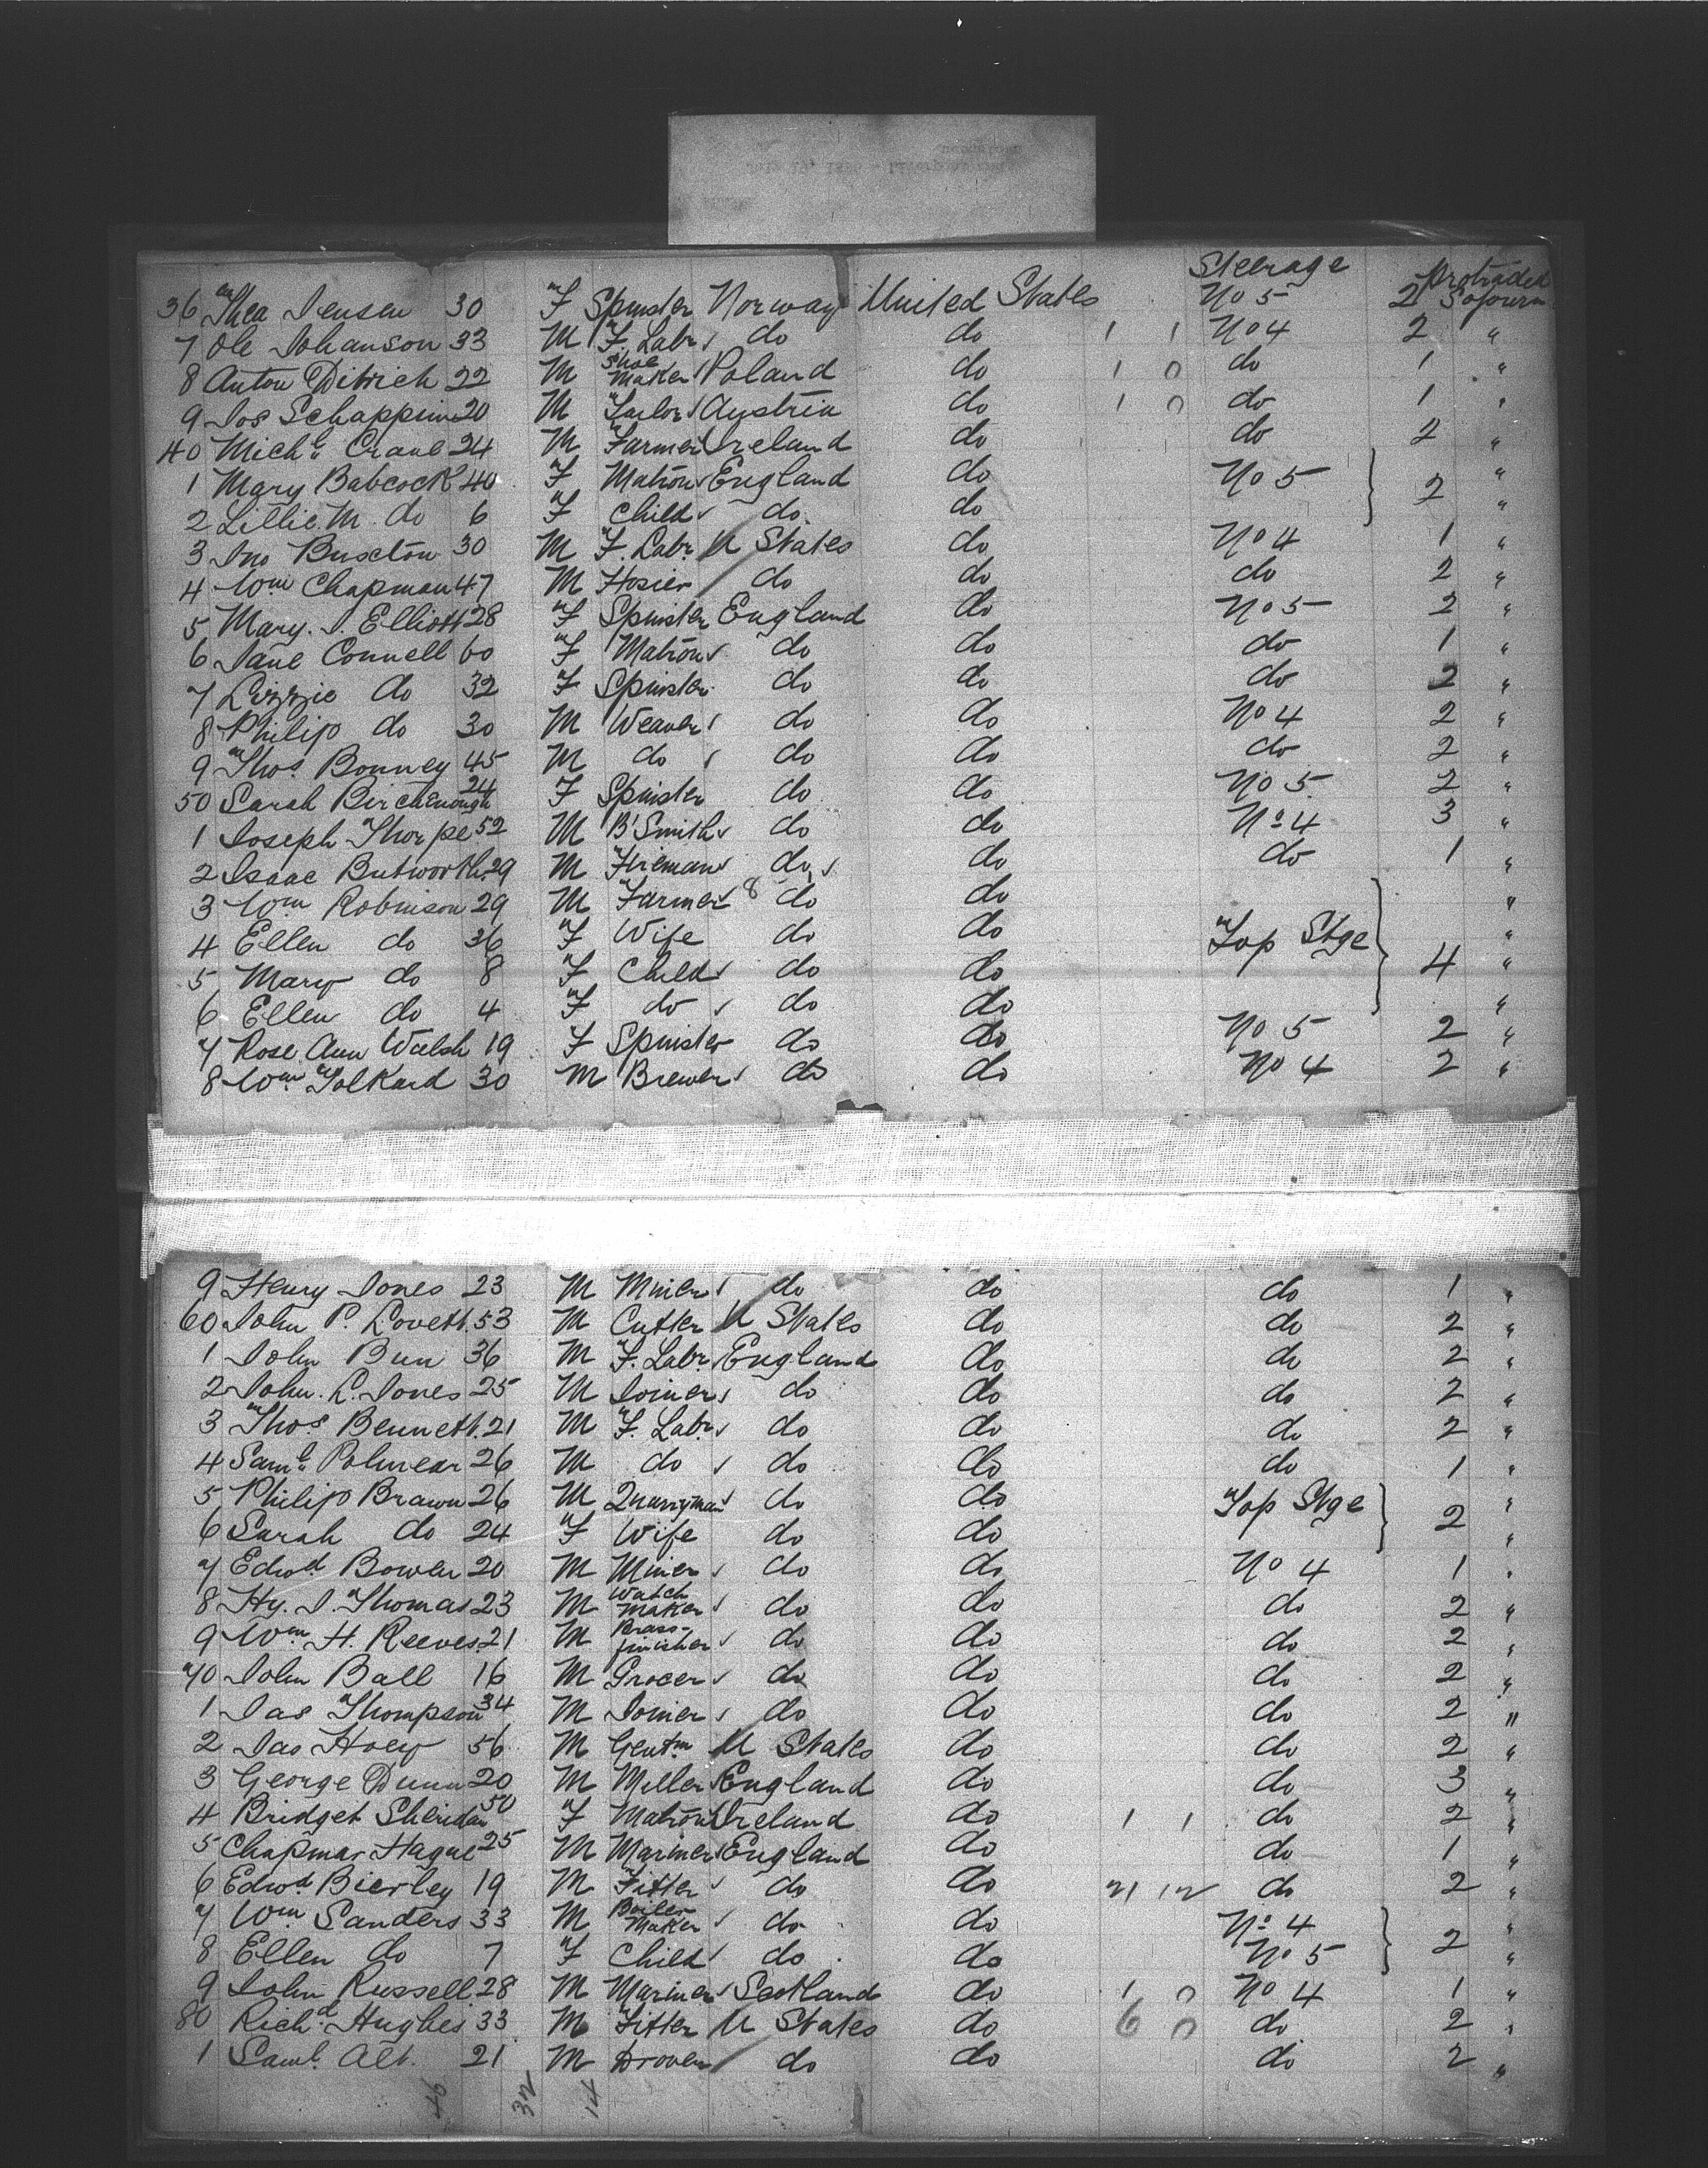 Steerage Protracted
36 Thea Jensen 30 F Spinster Norway United States No 5 2 Sojourn
7 Ole Johanson 33 M F. Labr do do 1 1 No 4 2 "
8 Anton Ditrich 22 M Shoe Maker Poland do 1 0 do 1 "
9 Jos Schappim 20 M Tailor Austria do 1 0 do 1 "
40 Michl. Crane 24 M Farmer Ireland do do 2 "
1 Mary Babcock 40 F Matron England do No 5 2 "
2 Lillie. M. do 6 F Child do. do "
3 Jno Buxton 30 M F. Labr. U States do No 4 1 "
4 Wm Chapman 47 M Hosier do do do 2 "
5 Mary. J. Elliott 28 F Spinster England do No 5 2 "
6 Jane Connell 60 F Matron do do do 1 "
7 Lizzie do 32 F Spinster do do do 2 "
8 Philip do 30 M Weaver do do No 4 2 "
9 Thos. Bonney 45 M do do do do 2 "
50 Sarah Birchenough 24 F Spinster do do No 5 2 "
1 Joseph Thorpe 52 M B'Smith do do No 4 3 "
2 Isaac Butworth. 29 M Fireman do do do 1 "
3 Wm Robinson 29 M Farmer 8 do do "
4 Ellen do 36 F Wife do do Top Stge "
5 Mary do 8 F Child do do 4 "
6 Ellen do 4 F do do do "
7 Rose Ann Walsh 19 F Spinster do do No 5 2 "
8 Wm Tolkard 30 M Brewer do do No 4 2 "
9 Henry Jones 23 M Miner do do do 1 "
60 John P. Lovett. 53 M Cutter U States do do 2 "
1 John Bun 36 M F. Labr. England do do 2 "
2 John. L. Jones 25 M Joiner do do do 2 "
3 Thos Bennett. 21 M F. Labr do do do 2 "
4 Saml. Polmear 26 M do do do do 1 "
5 Philip Brawn 26 M Quarryman do do Top Stge "
6 Sarah do 24 F Wife do do 2 "
7 Edwd Bowen 20 M Miner do do No 4 1 "
8 Hy. J. Thomas 23 M Watch Maker do do do 2 "
9 Wm. H. Reeves. 21 M Brass-finisher do do do 2 "
70 John Ball 16 M Grocer do do do 2 "
1 Jas Thompson 34 M Joiner do do do 2 "
2 Jas Hoey 56 M Gentm U States do do 2 "
3 George Dunn 20 M Miller England do do 3 "
4 Bridget Sheridan 50 F Matron Ireland do 1 1 do 2 "
5 Chapman Hague 25 M Mariner England do do 1 "
6 Edwd Bierley 19 M Fitter do do 21 12 do 2 "
7 Wm Sanders 33 M Boiler Maker do do No 4 "
8 Ellen do 7 F Child do do No 5 2 "
9 John Russell 28 M Mariner Scotland do 1 0 No 4 1 "
80 Richd. Hughes 33 M Fitter U States do 6 0 do 2 "
1 Saml. Alt. 21 M Drover do do do 2 "
46 32 14